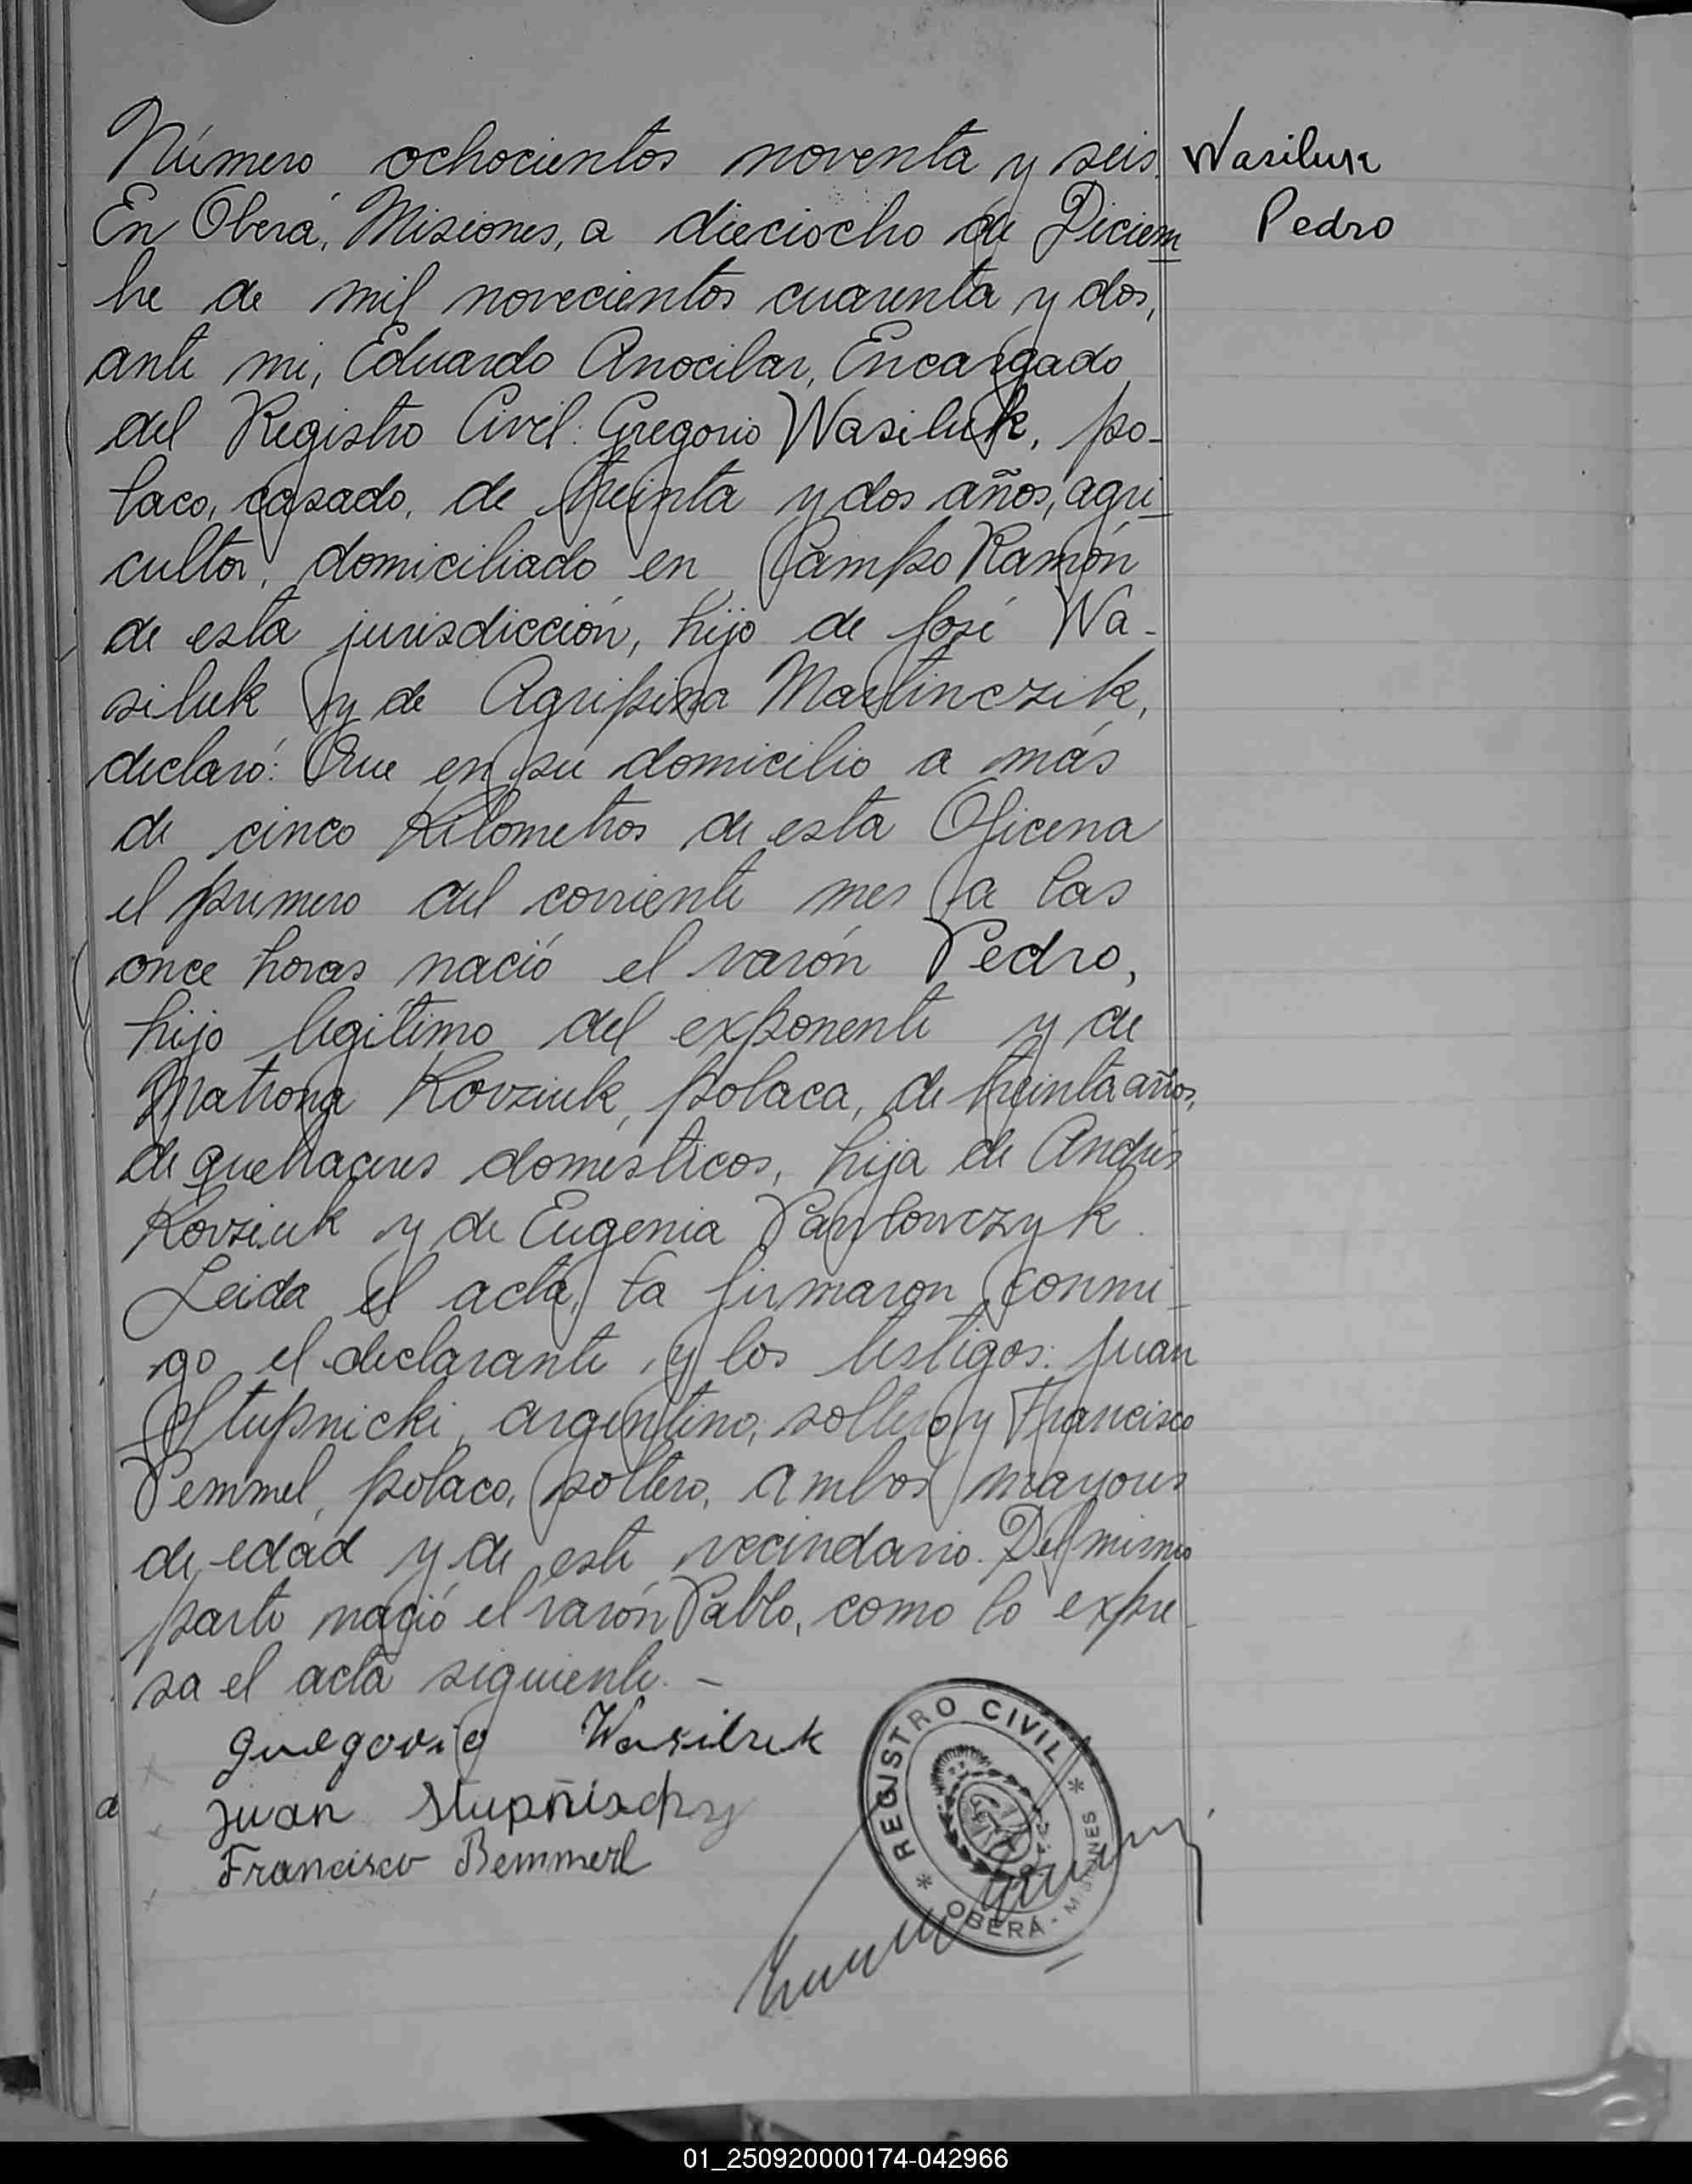 Número ochocientos noventa y seis.
Wasiluk
Pedro
En Oberá, Misiones, a dieciocho de Diciem
bre de mil novecientos cuarenta y dos,
ante mi, Eduardo Anocibar, Encargado
del Registro Civil: Gregorio Wasiluk, po-
laco, casado, de treinta y dos años, agri-
cultor, domiciliado en Campo Ramón
de esta jurisdicción, hijo de José Wa-
siluk y de Agripina Martinczik,
declaró: Que en su domicilio a más
de cinco Kilometros de esta Oficina
el primero del corriente mes a las
once horas nació el varón Pedro,
hijo legítimo del exponente y de
Matrona Kovziuk, polaca, de treinta años,
de quehaceres domésticos, hija de Andrés
Kovziuk y de Eugenia Pawlowczyk.
Leida el acta, la firmaron conmi-
go el declarante y los testigos: Juan
Stupnicki, argentino, soltero y Francisco
Pemmel, polaco, soltero, ambos mayores
de edad y de este vecindario. Del mismo
parto nació el varón Pablo, como lo expre-
sa el acta siguiente. -
Wasiluk
Juan
Francisco Bemmerl
* REGISTRO CIVIL *
OBERÁ - MISIONES
01_250920000174-042966